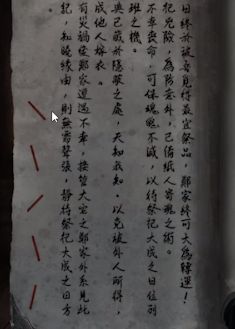 日終於被吾覓得最宜祭品，鄭家終可大為轉運！
犯危險，為防意外，已備紙人寄魂之術。
不幸喪命，可保魂魄不滅，以待祭祀大成之日位列
班之機。
典已藏於隱蔽之處，天知我知，以免被外人所得，
成他人嫁衣。
有災禍使鄭家遭遇不幸，接管大宅之鄭家外系見此
記，知曉緣由，則無需聲張，靜待祭祀大成之日方
。